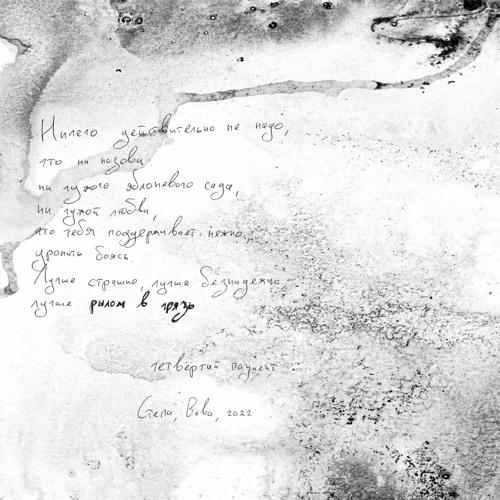 Ничего действительно не надо,
что ни назови
ни чужого яблоневого сада,
ни чужой любви,
что тебя поддерживает нежно,
уронить боясь.
Лучше страшно, лучше безнадежно,
лучше рылом в грязь
четвёртый пациент
Стела, Вова, 2022